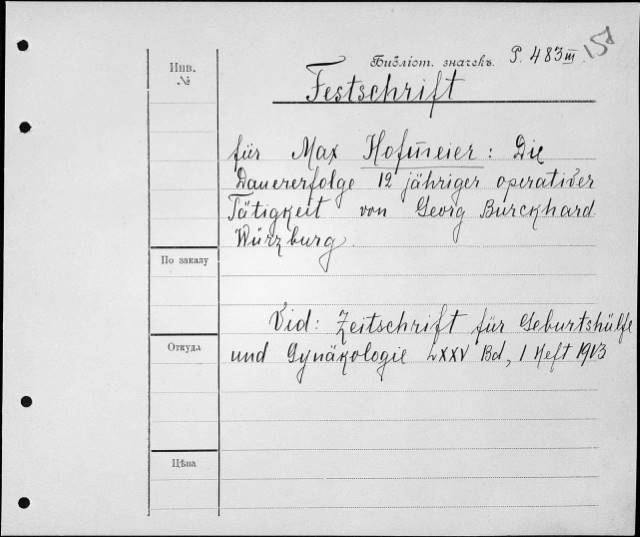 Библіот. значекъ. P. 483 III. 157
Инв. №
Festschrift
für Max Hofmeier: Die
Dauererfolge 12 jähriger operativer
Tätigkeit von Georg Burckhard
Würzburg.
По заказу
Vid: Zeitschrift für Geburtshülfe
Откуда
und Gynäkologie LXXV Bd, 1 Heft 1913
Цѣна